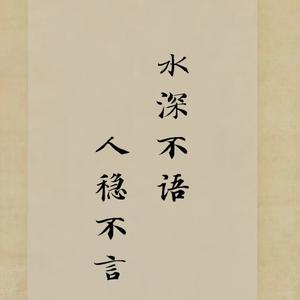 水深不语
人稳不言